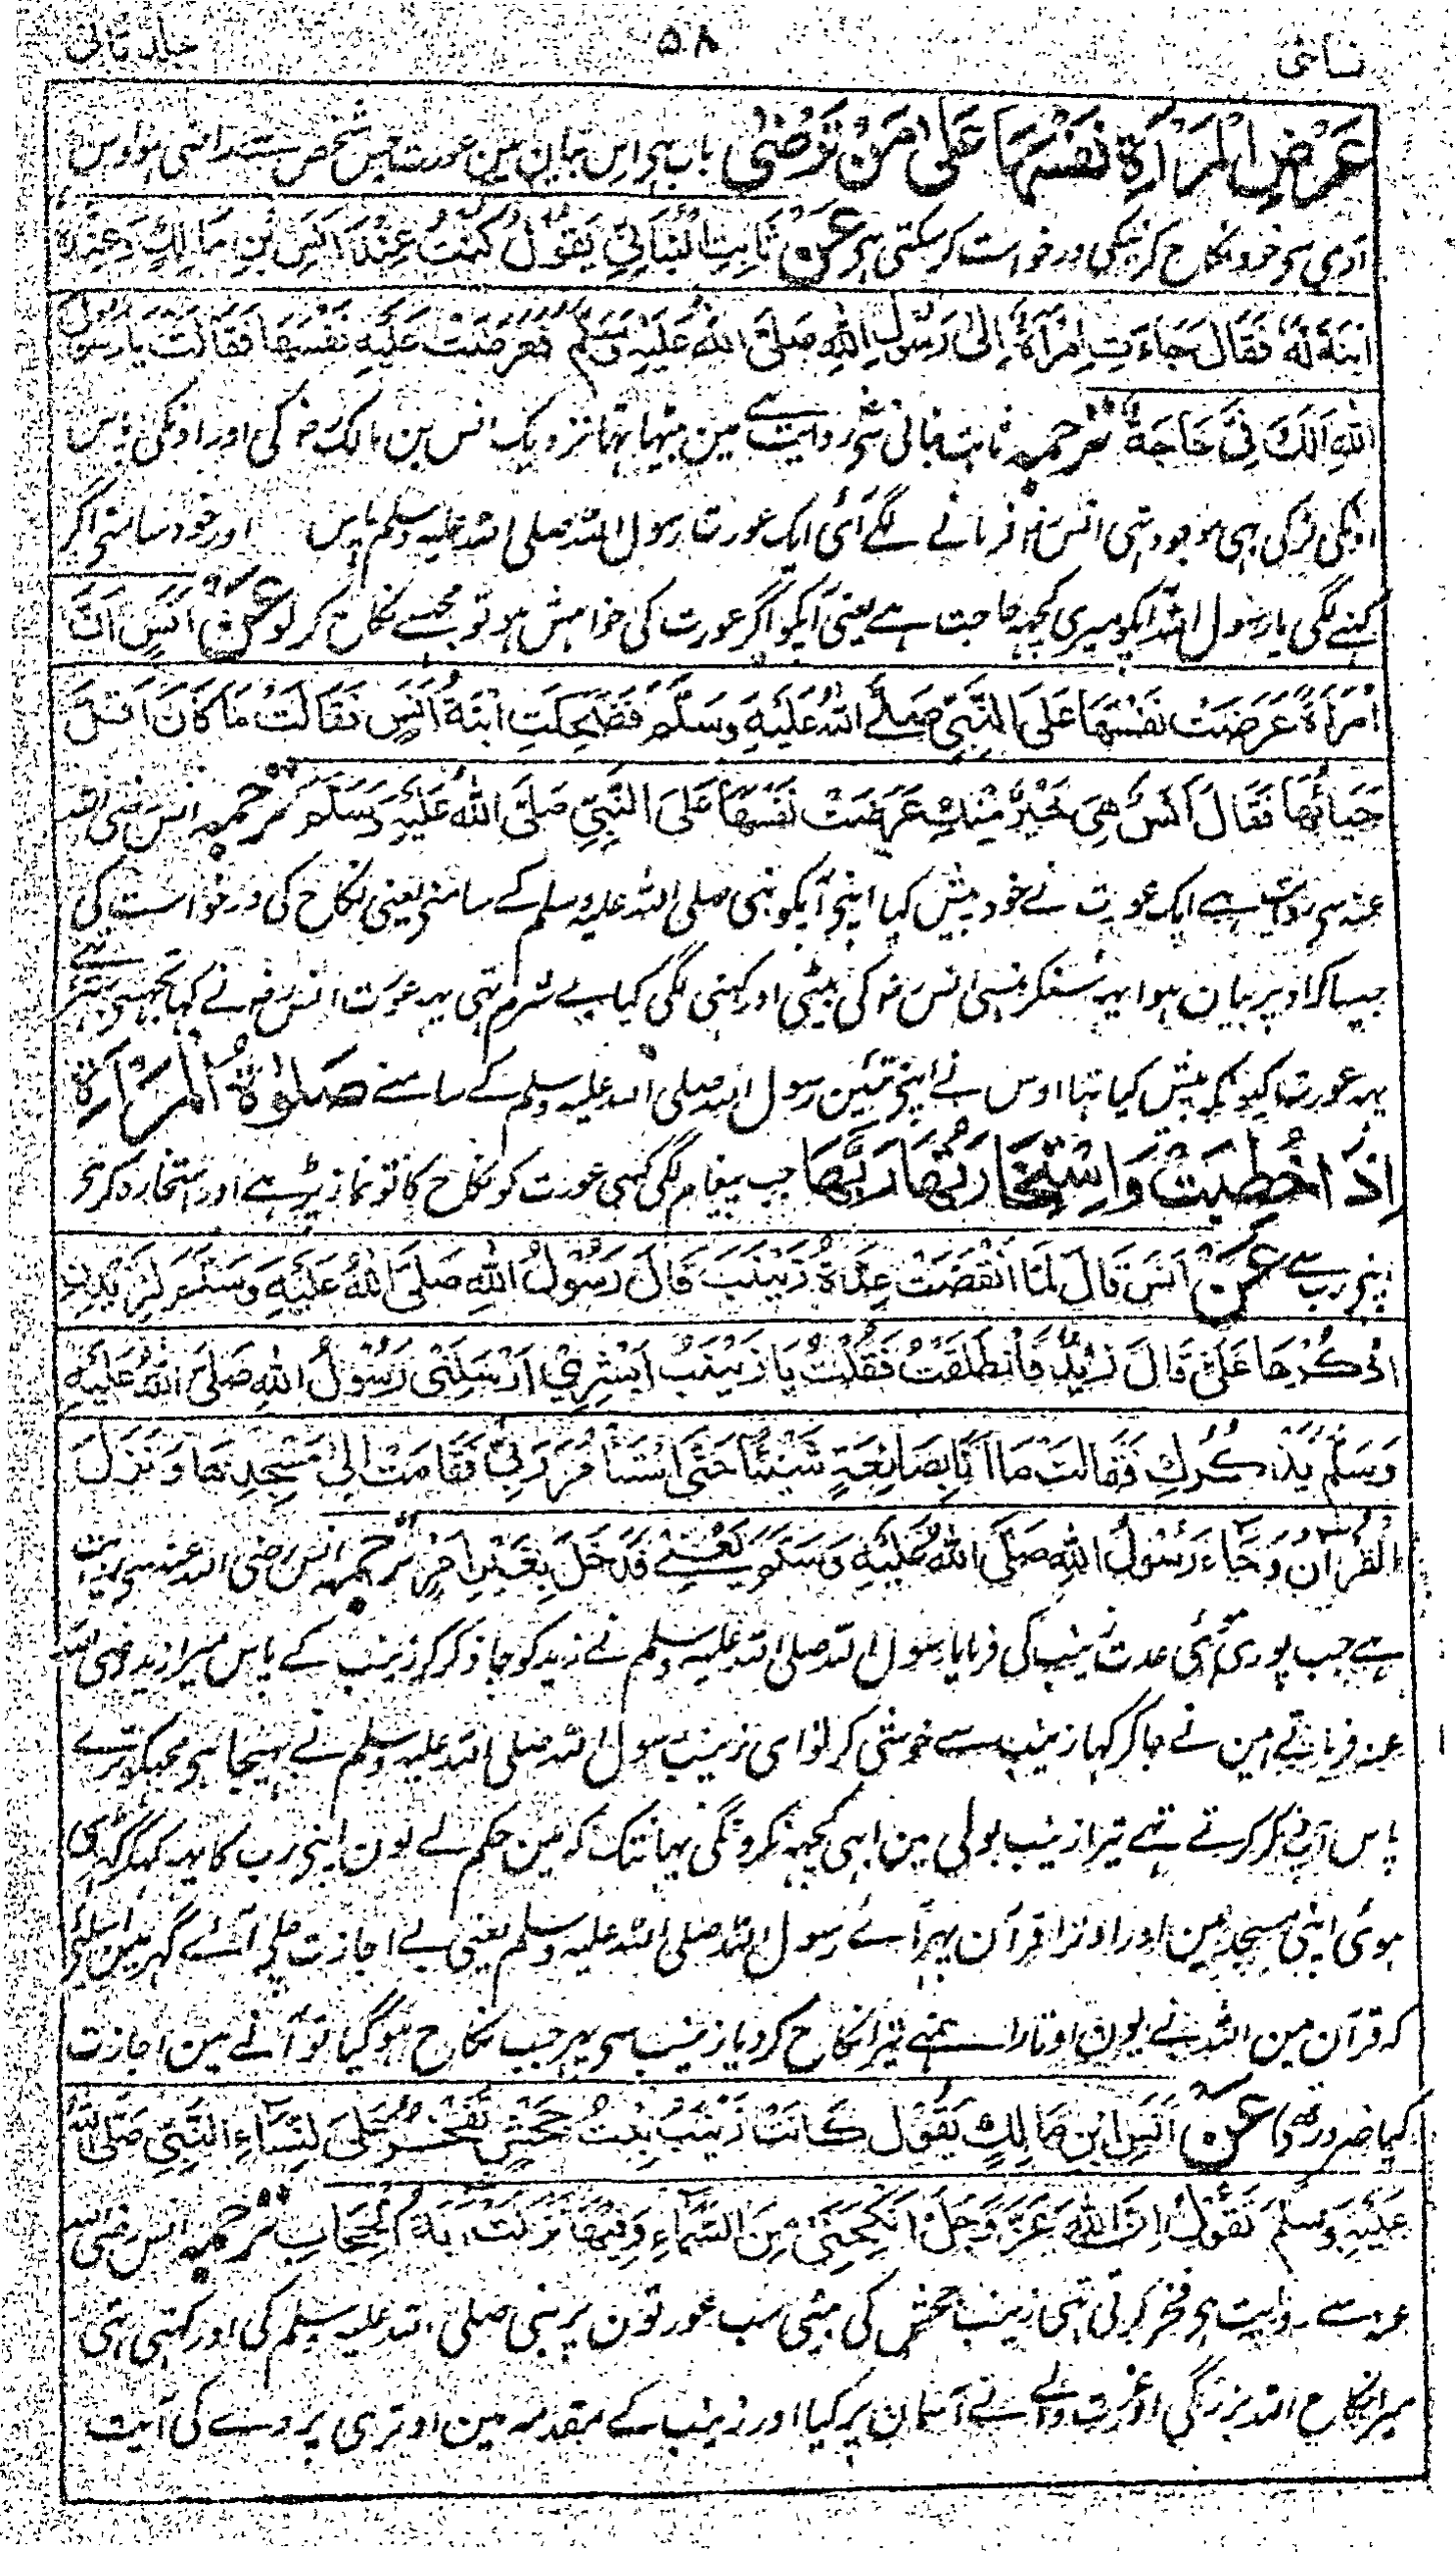 نسائی ۵۸ جلد ثانی
عَرْضِ الْمَرْأَةِ نَفْسَهَا عَلٰى مَنْ تَرْضٰى باب ہے اس بیان مین عورت جس شخص سے راضی ہو اوس
آدمی سے خود نکاح کرنیکی درخواست کر سکتی ہے عَنْ ثَابِتِ الْبُنَانِيِّ يَقُوْلُ كُنْتُ عِنْدَ اَنَسِ بْنِ مَالِكٍ وَعِنْدَهُ
ابْنَةٌ لَهُ فَقَالَ جَاءَتِ امْرَأَةٌ اِلٰى رَسُوْلِ اللهِ صَلَّى اللهُ عَلَيْهِ وَسَلَّمَ فَعَرَضَتْ عَلَيْهِ نَفْسَهَا فَقَالَتْ يَا رَسُوْلَ
اللهِ اَلَكَ فِيَّ حَاجَةٌ ترجمہ ثابت بنانی سے روایت ہے مین بیٹھا تھا نزدیک انس بن مالک رضہ کی اور اونکی پاس
اونکی لڑکی بہی موجود تہی انس رضہ فرمانے لگے آئی ایک عورت رسول اللہ صلی اللہ علیہ وسلم پاس اور خود سامنے آکر
کہنے لگی یا رسول اللہ آپکو میری کچہہ حاجت ہے یعنی آپکو اگر عورت کی خواہش ہو تو مجہسے نکاح کر لو عَنْ اَنَسٍ اَنَّ
امْرَاَةً عَرَضَتْ نَفْسَهَا عَلَى النَّبِيِّ صَلَّى اللهُ عَلَيْهِ وَسَلَّمَ فَضَحِكَتِ ابْنَةُ اَنَسٍ فَقَالَتْ مَا كَانَ اَقَلَّ
حَيَائَهَا فَقَالَ اَنَسٌ هِيَ خَيْرٌ مِنْكِ عَرَضَتْ نَفْسَهَا عَلَى النَّبِيِّ صَلَّى اللهُ عَلَيْهِ وَسَلَّمَ ترجمہ انس رضی اللہ
عنہ سے روایت ہے ایک عورت نے خود پیش کیا اپنے آپکو نبی صلی اللہ علیہ وسلم کے سامنے یعنی نکاح کی درخواست کی
جیسا کہ اوپر بیان ہوا یہہ سنکر ہنسی انس رضہ کی بیٹی اور کہنی لگی کیا بے شرم تہی یہہ عورت انس رضہ نے کہا تجہسے بہتر ہے
یہہ عورت کیونکہ پیش کیا تہا اوس نے اپنے تئین رسول اللہ صلی اللہ علیہ وسلم کے سامنے صَلٰوةُ الْمَرْاَةِ
اِذَا خُطِبَتْ وَاسْتِخَارَتُهَا رَبَّهَا جب پیغام لگی کسی عورت کو نکاح کا تو نماز پڑہے اور استخارہ کرے
اپنے رب سے عَنْ اَنَسٍ قَالَ لَمَّا انْقَضَتْ عِدَّةُ زَيْنَبَ قَالَ رَسُوْلُ اللهِ صَلَّى اللهُ عَلَيْهِ وَسَلَّمَ لِزَيْدٍ
اذْكُرْهَا عَلَيَّ قَالَ زَيْدٌ فَانْطَلَقْتُ فَقُلْتُ يَا زَيْنَبُ اَبْشِرِيْ اَرْسَلَنِيْ رَسُوْلُ اللهِ صَلَّى اللهُ عَلَيْهِ
وَسَلَّمَ يَذْكُرُكِ فَقَالَتْ مَا اَنَا بِصَانِعَةٍ شَيْئًا حَتّٰى اَسْتَأْمِرَ رَبِّيْ فَقَامَتْ اِلٰى مَسْجِدِهَا وَنَزَلَ
الْقُرْاٰنُ وَجَاءَ رَسُوْلُ اللهِ صَلَّى اللهُ عَلَيْهِ وَسَلَّمَ يَعْنِيْ فَدَخَلَ بِغَيْرِ اَمْرٍ ترجمہ انس رضی اللہ عنہ سے روایت
ہے جب پوری ہوئی عدت زینب کی فرمایا رسول اللہ صلی اللہ علیہ وسلم نے زید کو جا ذکر کر زینب کے پاس میرا زید رضی اللہ
عنہ فرماتے ہین مین نے جاکر کہا زینب سے خوشی کر لو ای زینب رسول اللہ صلی اللہ علیہ وسلم نے بہیجا ہے مجہکو تیرے
پاس آپ ذکر کرتے تہے تیرا زینب بولی مین ابہی کچہہ نکرونگی یہانتک کہ مین حکم لے لون اپنی رب کا یہہ کہکر کہڑی
ہوئی اپنی مسجد مین اور اوترا قرآن پہر آئے رسول اللہ صلی اللہ علیہ وسلم یعنی بے اجازت چلے آئے گہر مین اسلئے
کہ قرآن مین اللہ نے یون اوتارا ہمنے تیرا نکاح کر دیا زینب سے پہر جب نکاح ہوگیا تو آنے مین اجازت
کیا ضرور تہی عَنْ اَنَسِ ابْنِ مَالِكٍ يَقُوْلُ كَانَتْ زَيْنَبُ بِنْتُ جَحْشٍ تَفْخَرُ عَلٰى نِسَاءِ النَّبِيِّ صَلَّى اللهُ
عَلَيْهِ وَسَلَّمَ تَقُوْلُ اِنَّ اللهَ عَزَّ وَجَلَّ اَنْكَحَنِيْ مِنَ السَّمَاءِ وَفِيْهَا نَزَلَتْ اٰيَةُ الْحِجَابِ ترجمہ انس رضی اللہ
عنہ سے روایت ہے فخر کرتی تہی زینب جحش کی بیٹی سب عورتون پر نبی صلی اللہ علیہ وسلم کی اور کہتی تہی
میرا نکاح اللہ بزرگی اور عزت والے نے آسمان پر کیا اور زینب کے مقدمہ مین اوتری پردے کی آیت